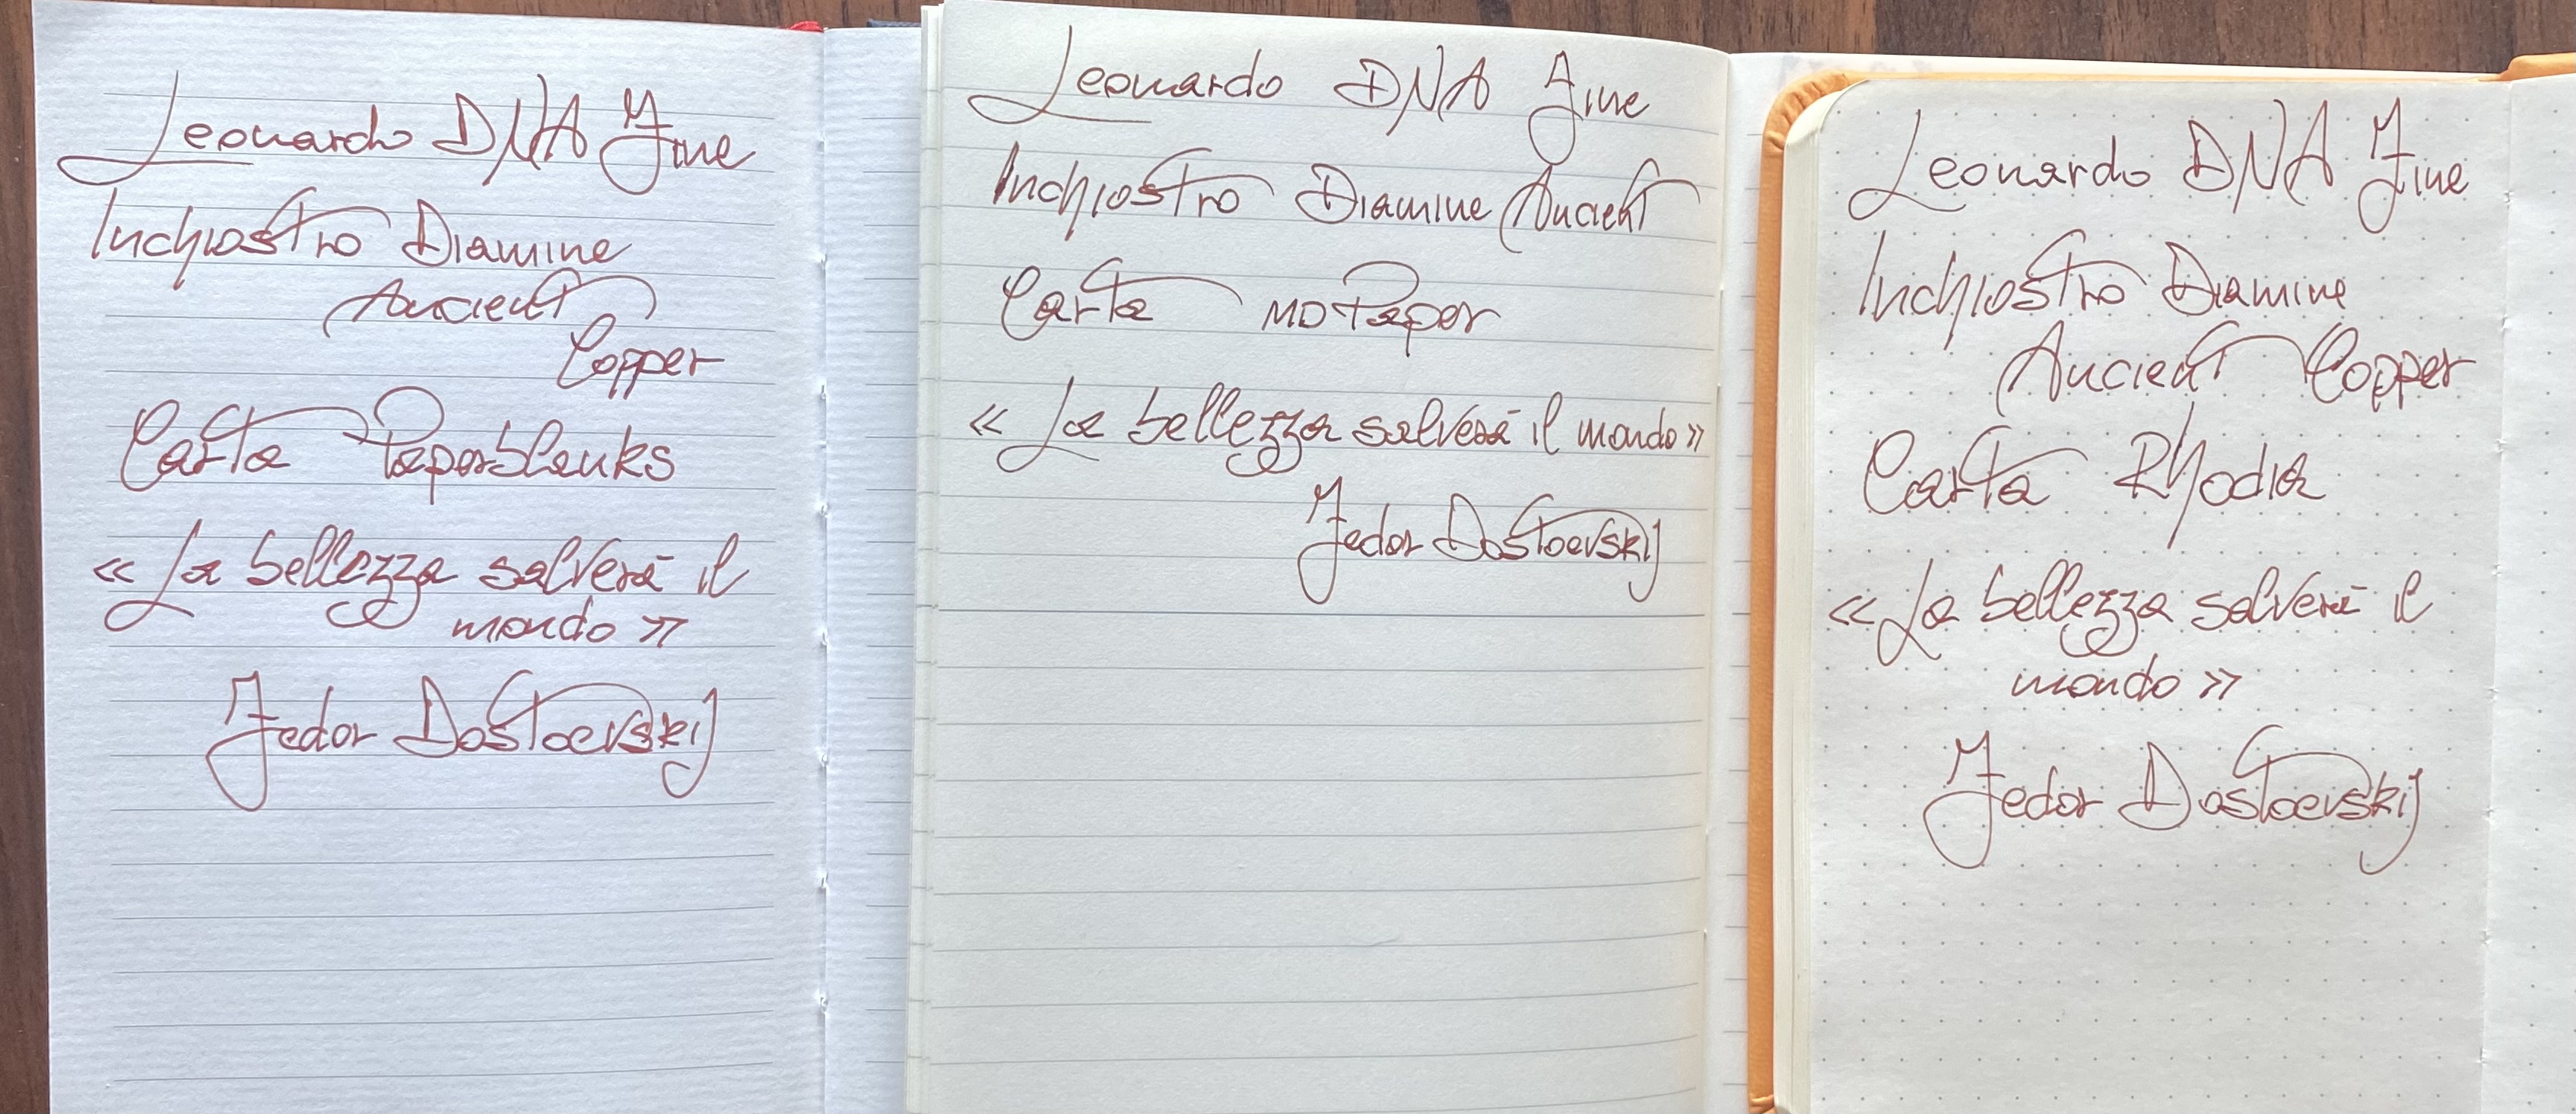 Leonardo DNA Fine
Inchiostro Diamine
Ancient
Copper
Carta Paperblanks
« La bellezza salverà il
mondo »
Fedor Dostoevskij
Leonardo DNA Fine
Inchiostro Diamine Ancient
Carta MD Paper
« La bellezza salverà il mondo »
Fedor Dostoevskij
Leonardo DNA Fine
Inchiostro Diamine
Ancient Copper
Carta Rhodia
« La bellezza salverà il
mondo »
Fedor Dostoevskij